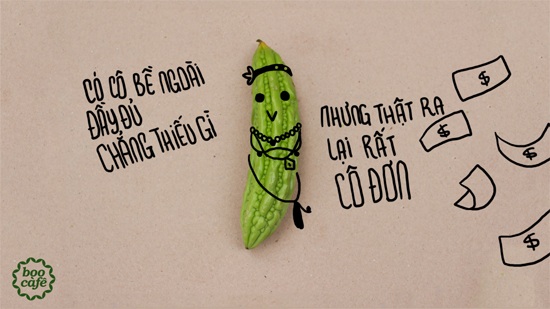 CÓ CÔ BỀ NGOÀI
ĐẦY ĐỦ
CHẲNG THIẾU GÌ
NHƯNG THẬT RA
LẠI RẤT
CÔ ĐƠN
$
$
$
$
bọo
càfê